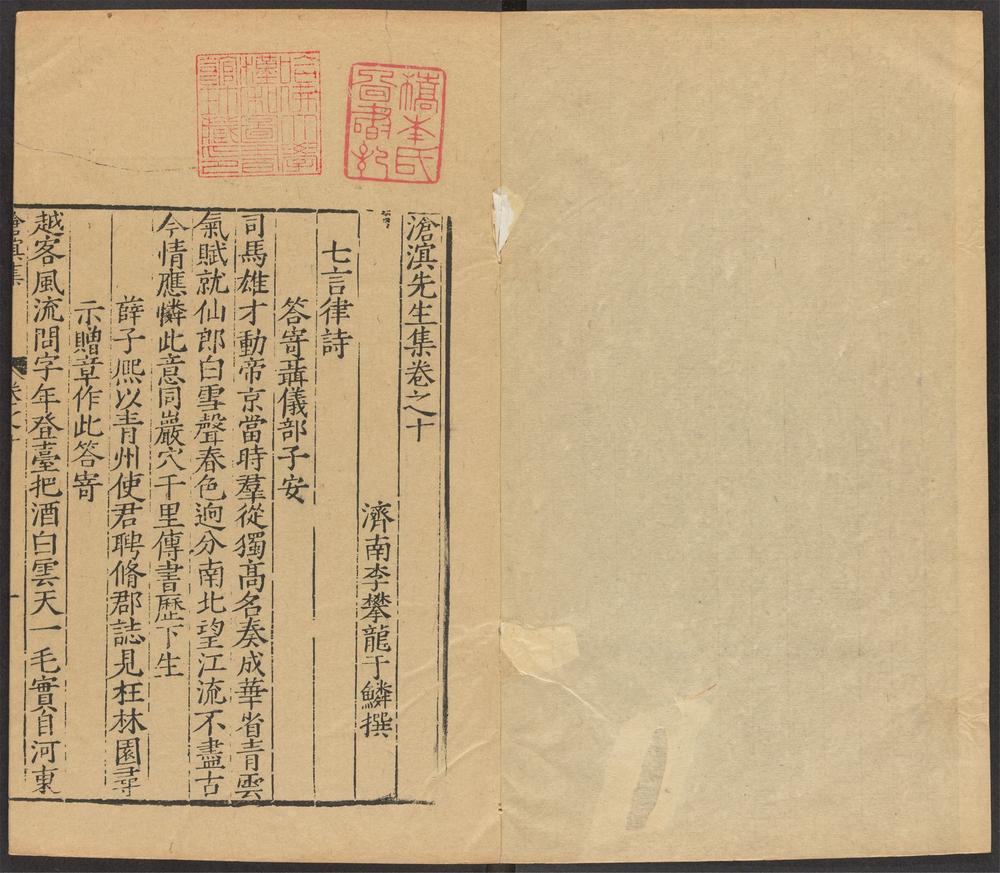 滄溟先生集卷之十
濟南李攀龍于鱗撰
七言律詩
答寄聶儀部子安
司馬雄才動帝京當時羣從獨高名奏成華省青雲
氣賦就仙郎白雪聲春色逈分南北望江流不盡古
今情應憐此意同巖穴千里傳書歷下生
薛子熈以青州使君聘脩郡誌見枉林園尋
示贈章作此答寄
越客風流問字年登臺把酒白雲天一毛實自河東
滄溟集
卷之十
一
橋本氏
哈佛大學
漢和圖書
館珍藏印